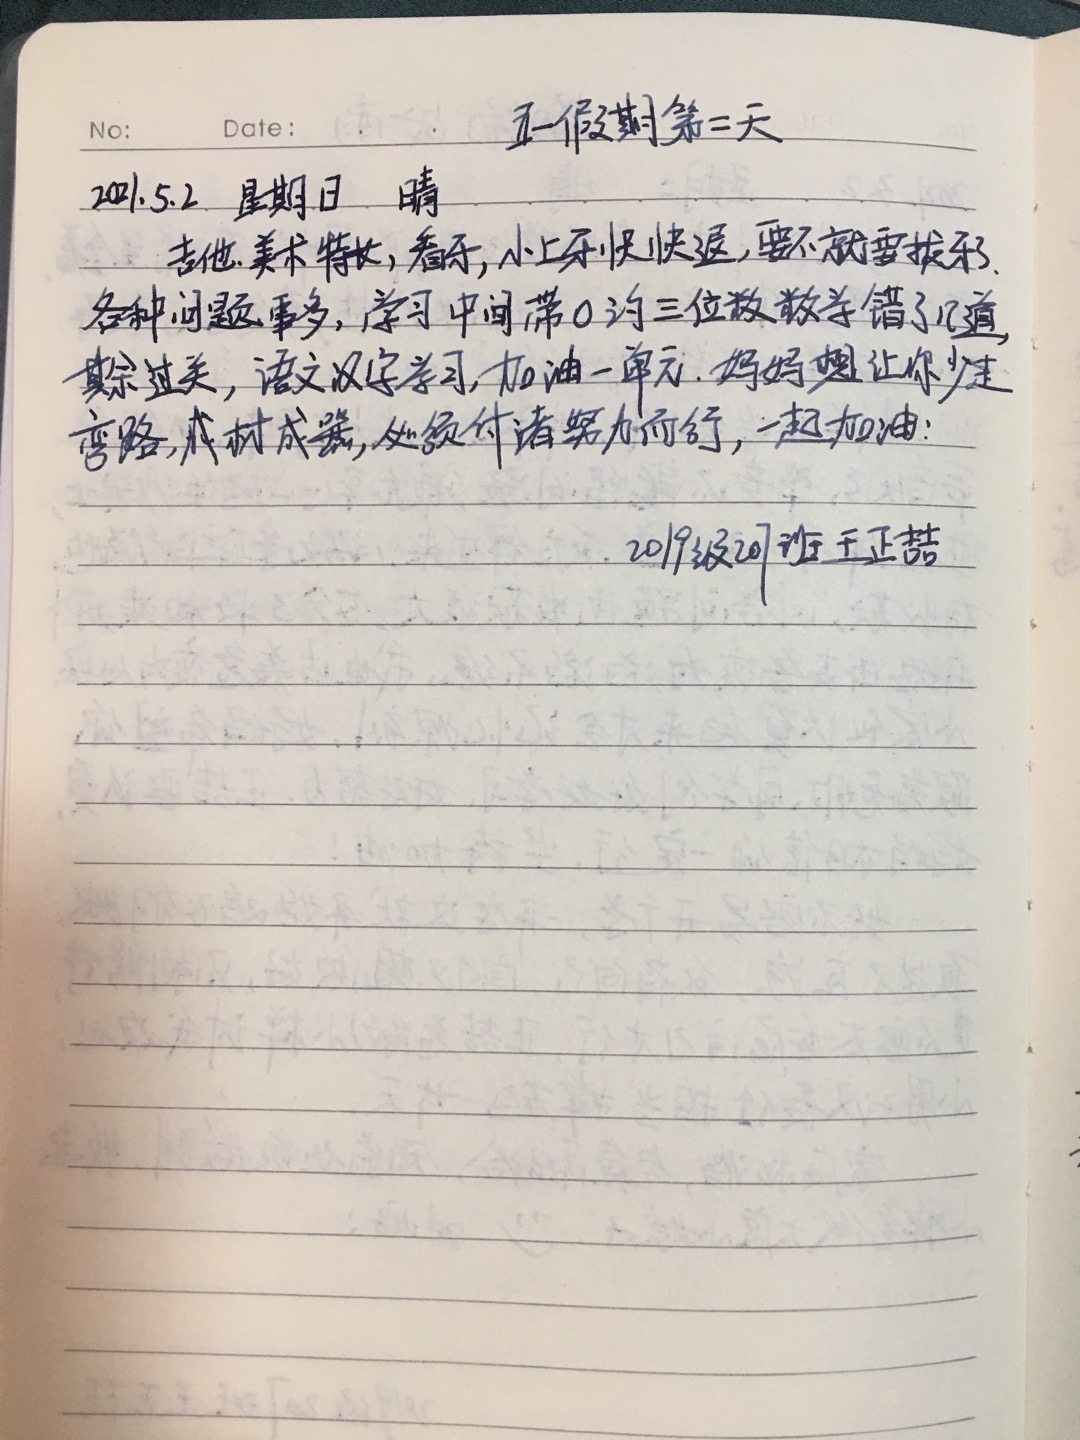 No: Date: 五一假期第二天
2021.5.2 星期日 晴
吉他.美术特长,看牙,小上牙快快退,要不就要拔牙.
各种问题事多,学习中间带0的三位数数学错了几道,
其余过关,语文汉字学习,加油一单元.妈妈想让你少走
弯路,成材成器,必须付诸努力而行,一起加油:
2019级207班王正喆